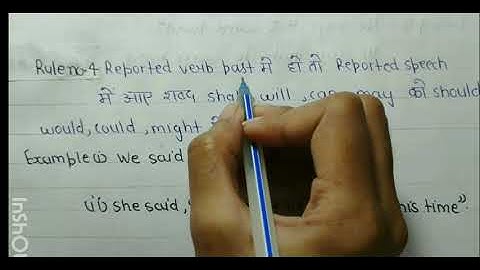 Rule no-4 Reported verb past में हो तो Reported speech
में आए शब्द shall will, can may को should
would, could, might
Example (i) we said
(ii) she said, his time".
InshO